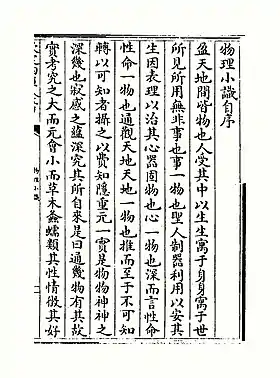 物理小識自序
盈天地間皆物也人受其中以生生寓于身身寓于世
所見所用無非事也事一物也聖人制器利用以安其
生因表理以治其心器固物也心一物也深而言性命
性命一物也通觀天地天地一物也推而至于不可知
轉以可知者攝之以費知隱重元一實是物物神神之
深幾也寂感之蘊深究其所自來是曰通幾物有其故
實考究之大而元會小而草木螽蠕類其性情徵其好
物理小識